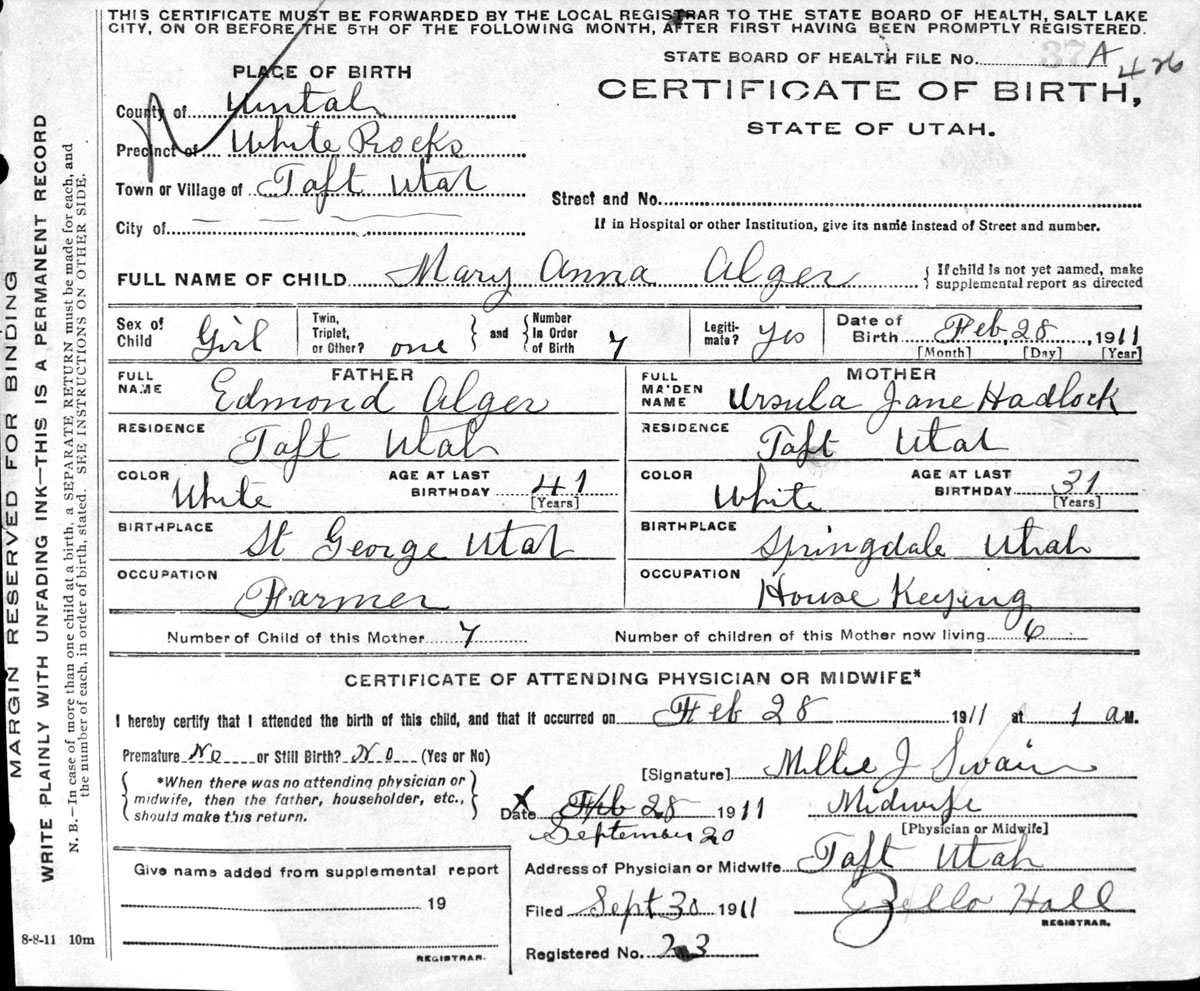 THIS CERTIFICATE MUST BE FORWARDED BY THE LOCAL REGISTRAR TO THE STATE BOARD OF HEALTH, SALT LAKE
CITY, ON OR BEFORE THE 5TH OF THE FOLLOWING MONTH, AFTER FIRST HAVING BEEN PROMPTLY REGISTERED.
STATE BOARD OF HEALTH FILE NO. 37 A 426
PLACE OF BIRTH
CERTIFICATE OF BIRTH,
STATE OF UTAH.
County of Uintah
Precinct of White Rocks
Town or Village of Taft Utah
Street and No.
City of
If in Hospital or other Institution, give its name instead of Street and number.
FULL NAME OF CHILD Mary Anna Alger { If child is not yet named, make
supplemental report as directed
Sex of Child Girl Twin, Triplet, or Other? one } and { Number In Order of Birth 7 Legiti-mate? Yes Date of Birth Feb, 28, 1911
[Month] [Day] [Year]
FATHER MOTHER
FULL NAME Edmond Alger FULL MAIDEN NAME Ursula Jane Hadlock
RESIDENCE Taft Utah RESIDENCE Taft Utah
COLOR White AGE AT LAST BIRTHDAY 41 [Years] COLOR White AGE AT LAST BIRTHDAY 31 [Years]
BIRTHPLACE St George Utah BIRTHPLACE Springdale Utah
OCCUPATION Farmer OCCUPATION House Keping
Number of Child of this Mother 7 Number of children of this Mother now living 6
CERTIFICATE OF ATTENDING PHYSICIAN OR MIDWIFE*
I hereby certify that I attended the birth of this child, and that it occurred on Feb 28 1911 at 1 a M.
Premature No or Still Birth? No (Yes or No)
[Signature] Millie J Swain
{ *When there was no attending physician or
midwife, then the father, householder, etc.,
should make this return. }
X
Date Feb 28 1911 Midwife
[Physician or Midwife]
September 20
Address of Physician or Midwife Taft Utah
Filed Sept 30 1911 Zella Hall
REGISTRAR.
Registered No. 23
Give name added from supplemental report
19
REGISTRAR.
8-8-11 10m
MARGIN RESERVED FOR BINDING
WRITE PLAINLY WITH UNFADING INK—THIS IS A PERMANENT RECORD
N. B.—In case of more than one child at a birth, a SEPARATE RETURN must be made for each, and
the number of each, in order of birth, stated. SEE INSTRUCTIONS ON OTHER SIDE.